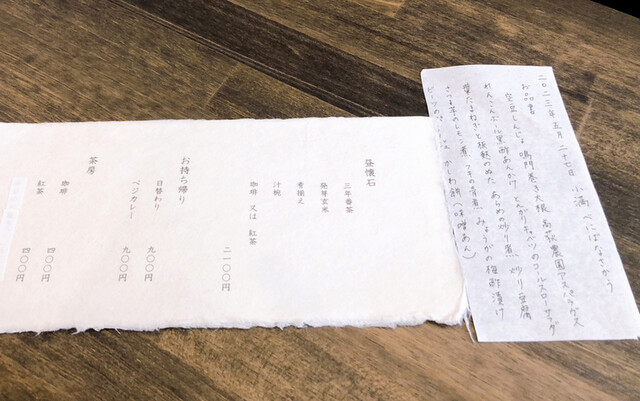 二〇二三年五月二十七日 小満 べにばなさかう
お品書
空豆しんじょ 鳴門巻き大根 高萩農園アスパラガス
れんこんボール黒酢あんかけ とんがりキャベツのコールスローサラダ
葉たまねぎと板麩のぬた あらめの炒り煮 炒り豆腐
さつま芋のレモン煮 フキの青煮 みょうがの梅酢漬け
かしわ餅(味噌あん)
昼懐石
三年番茶
発芽玄米
肴揃え
汁椀
珈琲 又は 紅茶
二一〇〇円
お持ち帰り
日替わり 九〇〇円
ベジカレー 九〇〇円
茶房
珈琲 四〇〇円
紅茶 四〇〇円